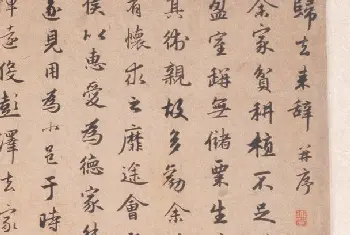 歸去来辭 并序
余家貧耕植不足
盈室缾無儲粟生
其術親故多勸余
有懷求之靡途會
侯以惠愛為德家
遂見用為小邑于時
憚遠役彭澤去家